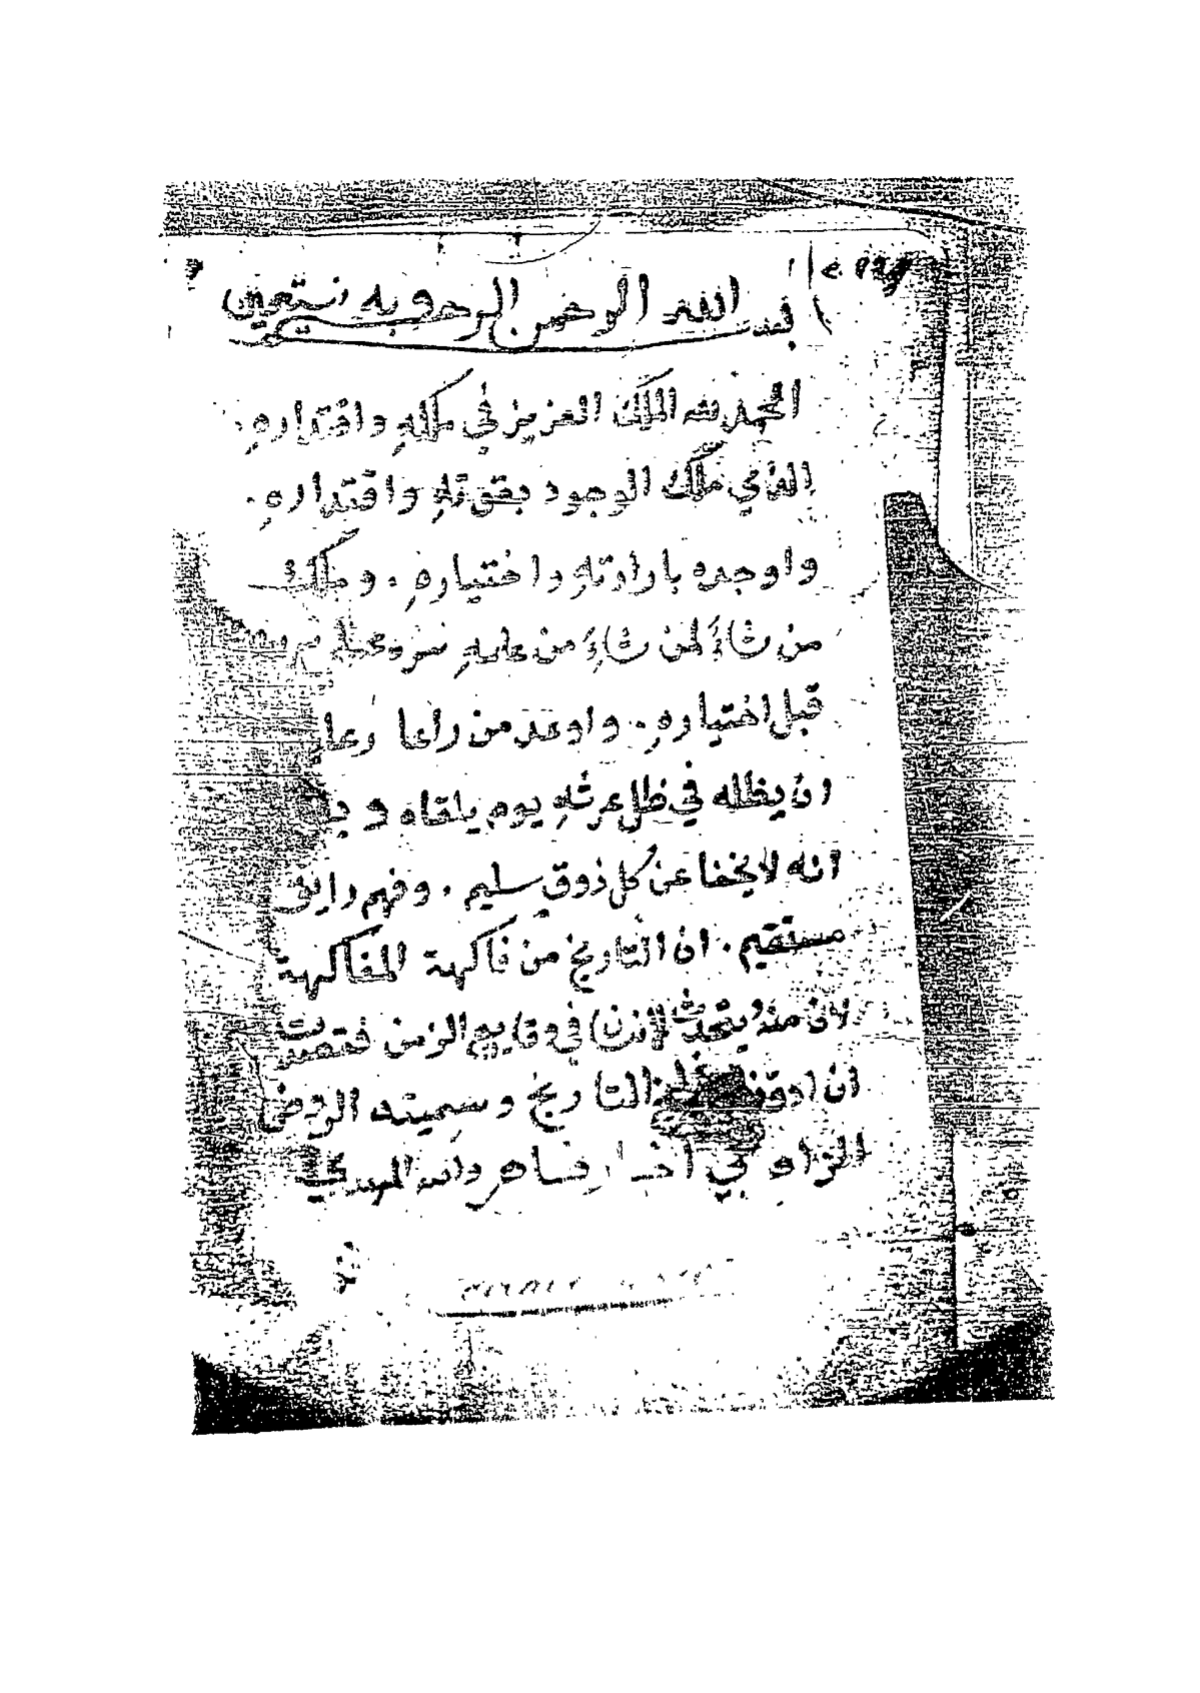 بسم الله الرحمن الرحيم وبه نستعين
الحمد لله الملك العزيز في ملكه واقتداره.
الذي ملك الوجود بقوته واقتداره.
واوجده بارادته واختياره. وملك
من شاءَ لمن شاءَ من علمه
قبل اختياره. واوعد من راعا رعا
ان يظله في ظل عرشه يوم يلقاه و
انه لا يخفا عن كل ذوق سليم. وفهم رايق
مستقيم. ان التاريخ من فاكهة المفاكهة
لان منه يتحدث الانسان في وقايع الزمن فقصدت
ان التاريخ وسميته الروض
الزاهر في اخبار ضاهر